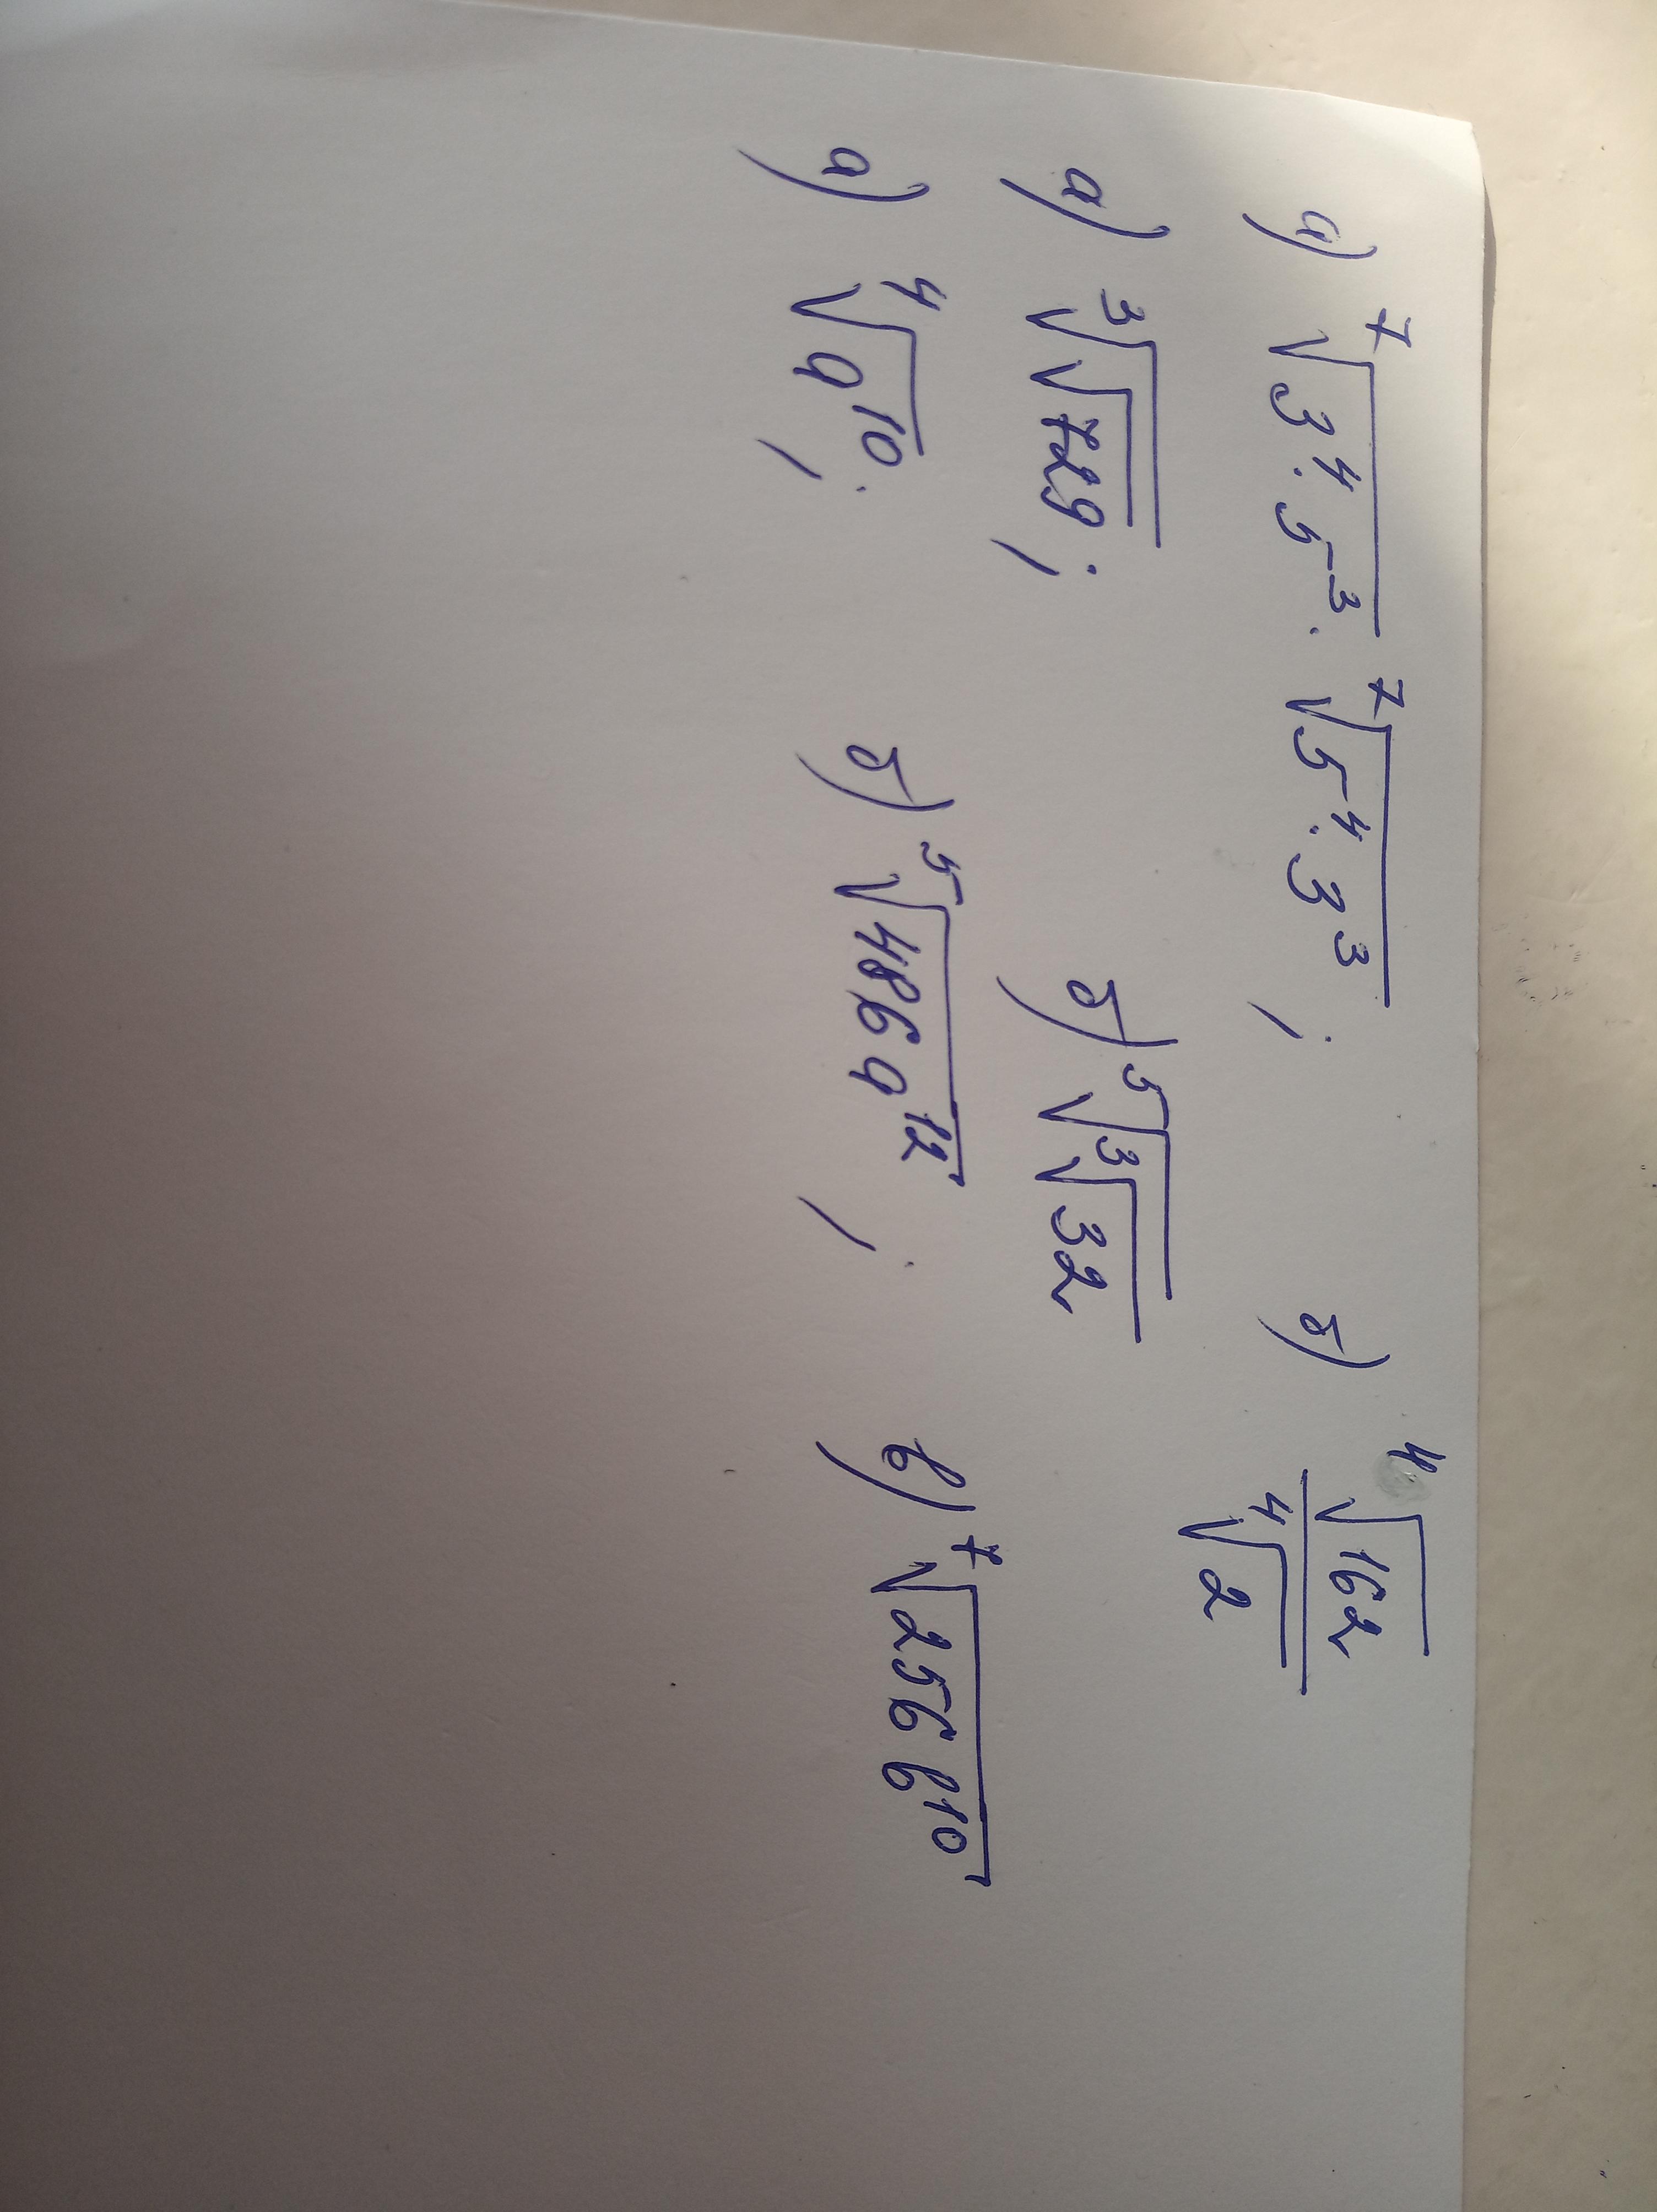 а) ⁷√(3⁴·5³) · ⁷√(5⁴·3³) ; б) ⁴√162 / ⁴√2
а) ³√(√729) ; б) ⁵√(³√32)
а) ⁴√(a¹⁰) ; б) ⁵√(486a¹²) ; в) ⁷√(256в¹⁰)